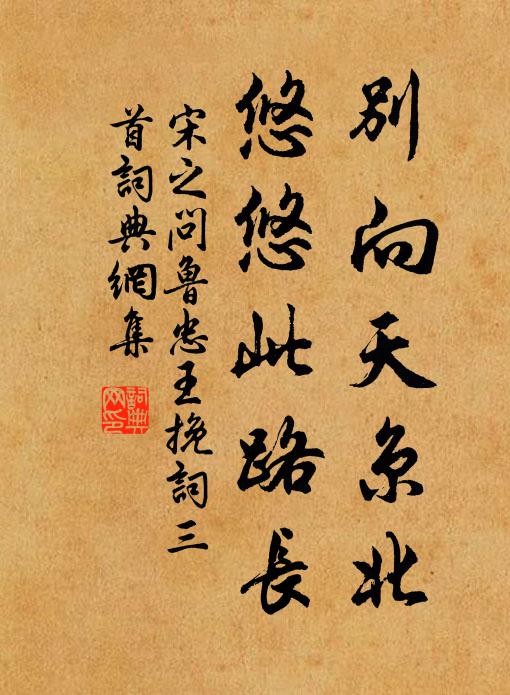 別向天京北
悠悠此路長
宋之问魯忠王挽詞三
首詞典網集
詞典网印